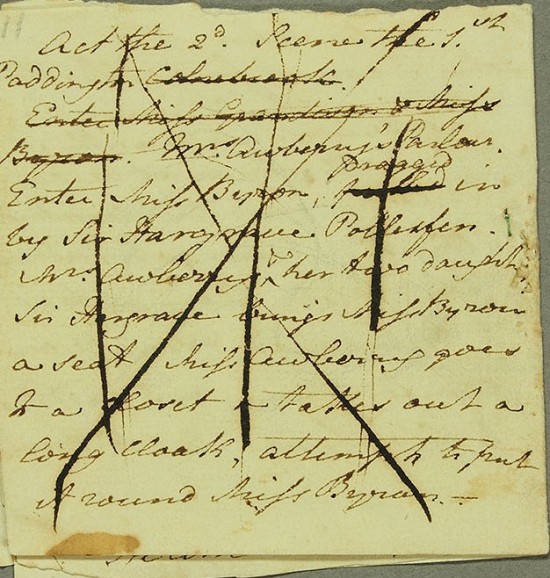 11
Act the 2d. Scene the 1st
Paddington Colnebrook.
Enter Miss Grandison & Miss
Byron. Mrs. Awberry's Parlour.
dragged
Enter Miss Byron, pulled in
by Sir Hargrave Pollexfen.
Mrs. Awberry & her two daughts.
Sir Hargrave brings Miss Byron
a seat Miss Awberry goes
to a closet & takes out a
long cloak, attempts to put
it round Miss Byron.—